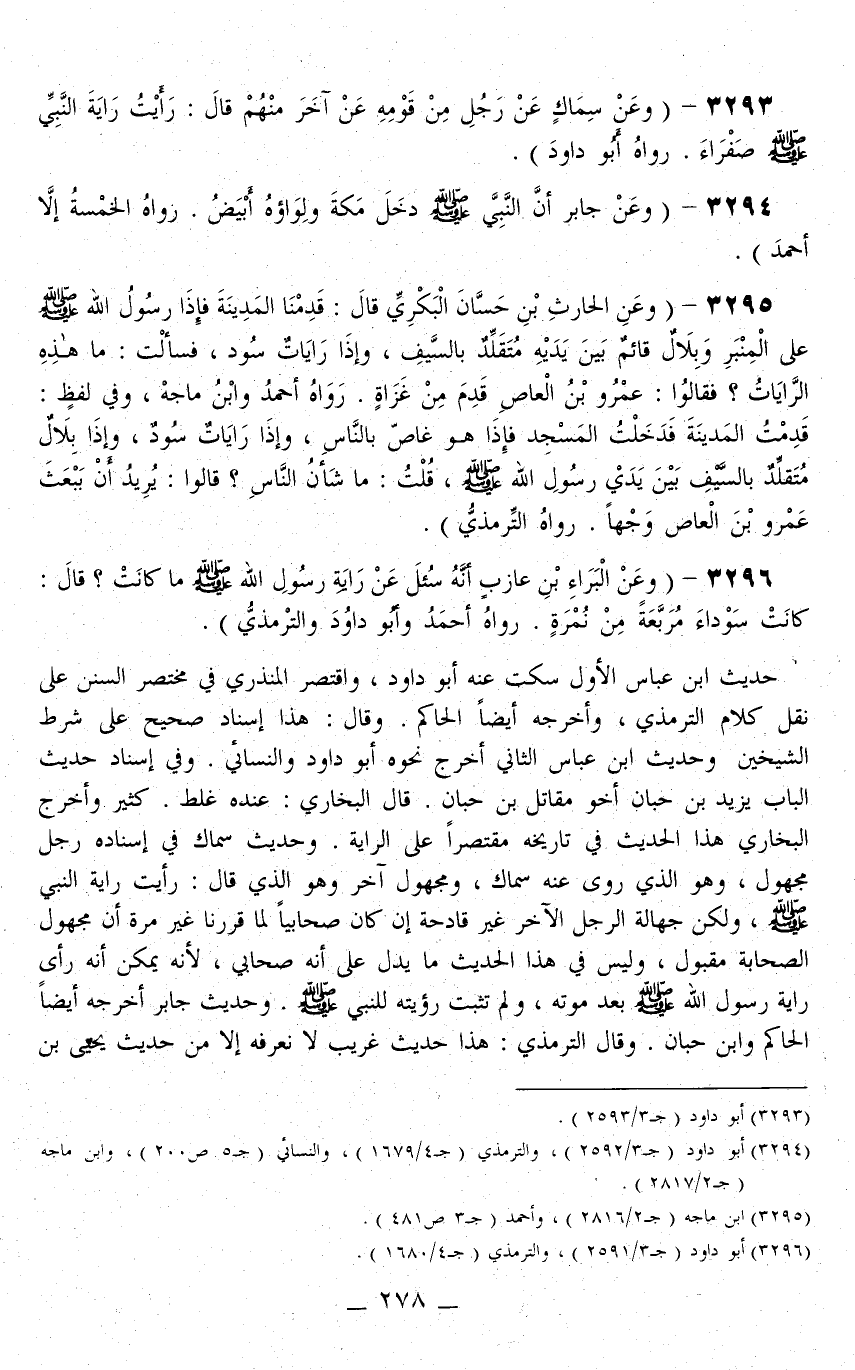 ٣٢٩٣ - ( وعَنْ سِمَاكٍ عَنْ رَجُلٍ مِنْ قَوْمِهِ عَنْ آخَرَ مِنْهُمْ قالَ : رَأَيْتُ رَايَةَ النَّبِيِّ
ﷺ صَفْرَاءَ . رواهُ أَبُو داودَ ) .
٣٢٩٤ - ( وعَنْ جابر أنَّ النَّبِيَّ ﷺ دخَلَ مَكةَ ولِوَاؤهُ أَبْيَضُ . رواهُ الخمْسةُ إلَّا
أحمدَ ) .
٣٢٩٥ - ( وعَنِ الحارثِ بْنِ حَسَّانَ الْبَكْرِيِّ قالَ : قَدِمْنَا المَدِينَةَ فإِذَا رسُولُ الله ﷺ
على الْمِنْبَرِ وَبِلَالٌ قائمٌ بَينَ يَدَيْهِ مُتَقَلِّدٌ بالسَّيفِ ، وإذَا رَايَاتٌ سُود ، فسألْت : ما هٰذِهِ
الرَّايَاتُ ؟ فقالُوا : عمْرُو بْنُ العاصِ قَدِمَ مِنْ غَزَاةٍ . رَوَاهُ أحمدُ وابْنُ ماجهْ ، وفي لفظٍ :
قَدِمْتُ المَدينَةَ فَدَخَلْتُ المَسْجِد فإِذَا هـو غاصّ بالنَّاسِ ، وإذَا رَايَاتٌ سُودٌ ، وإذَا بِلَالٌ
مُتَقلِّدٌ بالسَّيْفِ بَيْنَ يَدَيْ رسُولِ الله ﷺ ، قُلْتُ : ما شأنُ النَّاسِ ؟ قالوا : يُرِيدُ أَنْ يَبْعَثَ
عَمْرو بْنَ الْعاص وَجْهاً . رواهُ التِّرمذيُّ ) .
٣٢٩٦ - ( وعَنْ الْبَرَاءِ بْنِ عازبٍ أنَّهُ سُئلَ عَنْ رَايَةِ رسُولِ الله ﷺ ما كانَتْ ؟ قالَ :
كانَتْ سَوْداءَ مُرَبَّعَةً مِنْ نُمْرَةٍ . رواهُ أحمَدُ وأبُو داوُدَ والترْمذيُّ ) .
حديث ابن عباس الأول سكت عنه أبو داود ، واقتصر المنذري في مختصر السنن على
نقل كلام الترمذي ، وأخرجه أيضاً الحاكم . وقال : هذا إسناد صحيح على شرط
الشيخين وحديث ابن عباس الثاني أخرج نحوه أبو داود والنسائي . وفي إسناد حديث
الباب يزيد بن حبان أخو مقاتل بن حبان . قال البخاري : عنده غلط . كثير وأخرج
البخاري هذا الحديث في تاريخه مقتصراً على الراية . وحديث سماك في إسناده رجل
مجهول ، وهو الذي روى عنه سماك ، ومجهول آخر وهو الذي قال : رأيت راية النبي
ﷺ ، ولكن جهالة الرجل الآخر غير قادحة إن كان صحابياً لما قررنا غير مرة أن مجهول
الصحابة مقبول ، وليس في هذا الحديث ما يدل على أنه صحابي ، لأنه يمكن أنه رأى
راية رسول الله ﷺ بعد موته ، ولم تثبت رؤيته للنبي ﷺ . وحديث جابر أخرجه أيضاً
الحاكم وابن حبان . وقال الترمذي : هذا حديث غريب لا نعرفه إلا من حديث يحيى بن
(٣٢٩٣) أبو داود ( جـ٢٥٩٣/٣ ) .
(٣٢٩٤) أبو داود ( جـ٢٥٩٢/٣ ) ، والترمذي ( جـ١٦٧٩/٤ ) ، والنسائي ( جـ٥ ص٢٠٠ ) ، وابن ماجه
( جـ٢٨١٧/٢ ) .
(٣٢٩٥) ابن ماجه ( جـ٢٨١٦/٢ ) ، وأحمد ( جـ٣ ص٤٨١ ) .
(٣٢٩٦) أبو داود ( جـ٢٥٩١/٣ ) ، والترمذي ( جـ١٦٨٠/٤ ) .
— ٢٧٨ —